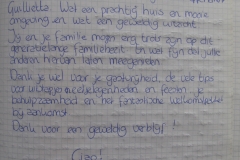 Guilliette. Wat een prachtig huis en mooie
omgeving en wat een geweldig uitzicht!
Jij en je familie mogen erg trots zijn op dit
familiebedrijf. En wat fijn dat jullie
anderen hiervan laten meegenieten.
Dank je wel voor je gastvrijheid, de vele tips
voor uitstapjes, eetgelegenheden en feesten, je
behulpzaamheid en het fantastische welkomstpakket
bij aankomst.
Dank voor een geweldig verblijf!
Ciao!